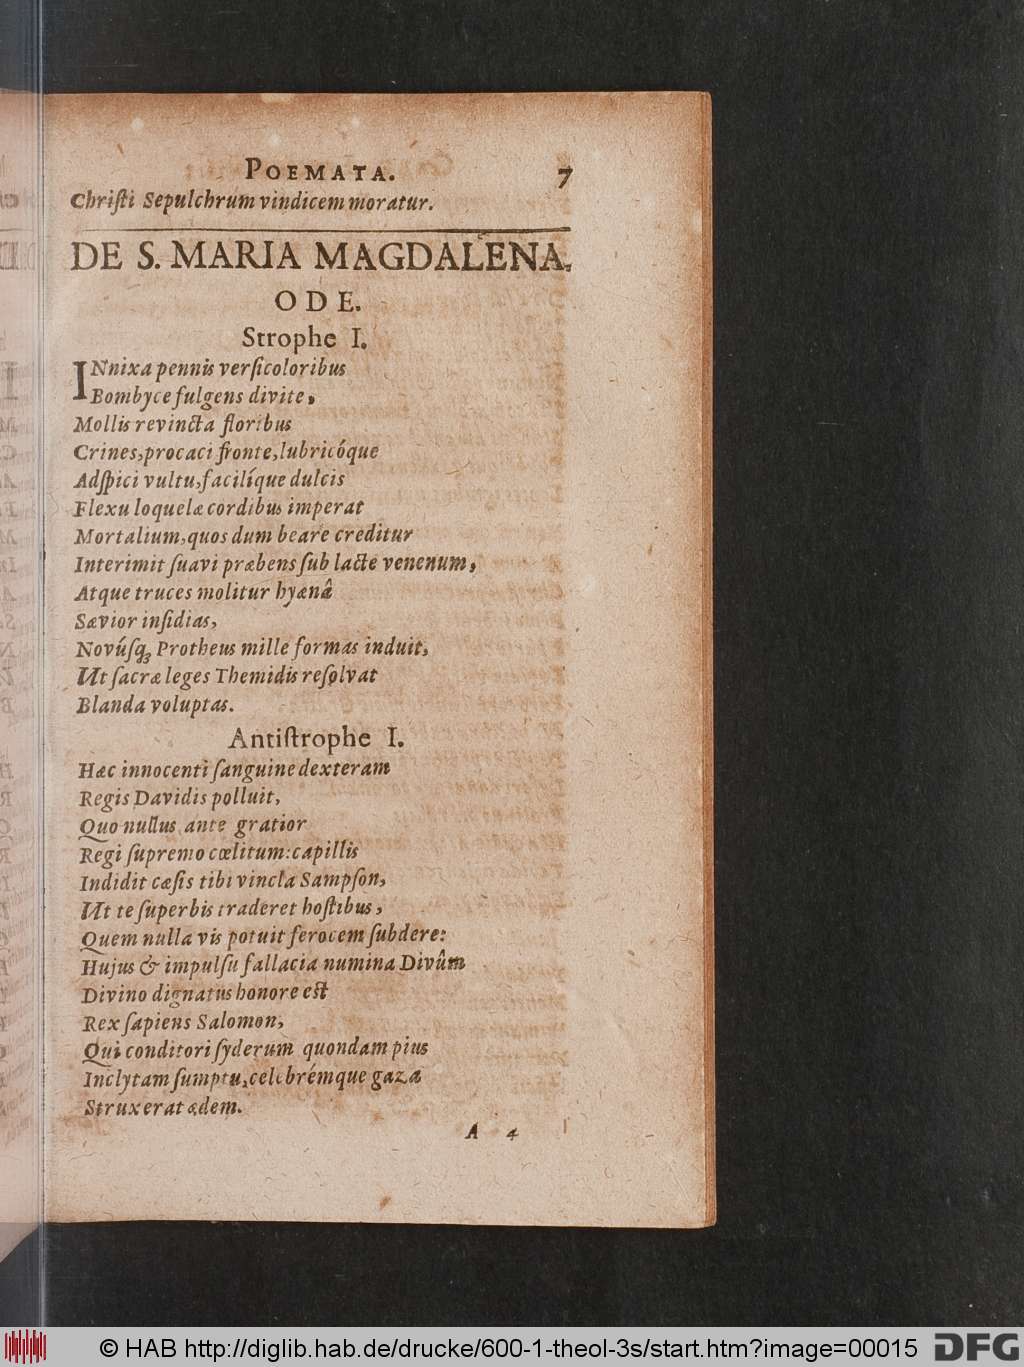 POEMATA. 7
Chriſti Sepulchrum vindicem moratur.
DE S. MARIA MAGDALENA.
ODE.
Strophe I.
INnixa pennis verſicoloribus
Bombyce fulgens divite,
Mollis revincta floribus
Crines, procaci fronte, lubricóque
Adſpici vultu, facilíque dulcis
Flexu loquelæ cordibus imperat
Mortalium, quos dum beare creditur
Interimit ſuavi præbens ſub lacte venenum,
Atque truces molitur hyænâ
Sævior inſidias,
Novúſq; Protheus mille formas induit,
Ut ſacræ leges Themidis reſolvat
Blanda voluptas.
Antiſtrophe I.
Hæc innocenti ſanguine dexteram
Regis Davidis polluit,
Quo nullus ante gratior
Regi ſupremo cœlitum: capillis
Indidit cæſis tibi vincla Sampſon,
Ut te ſuperbis traderet hoſtibus,
Quem nulla vis potuit ferocem ſubdere:
Hujus & impulſu fallacia numina Divûm
Divino dignatus honore eſt
Rex ſapiens Salomon,
Qui conditori ſyderum quondam pius
Inclytam ſumptu, celebrémque gaza
Struxerat ædem.
A 4
© HAB http://diglib.hab.de/drucke/600-1-theol-3s/start.htm?image=00015
DFG